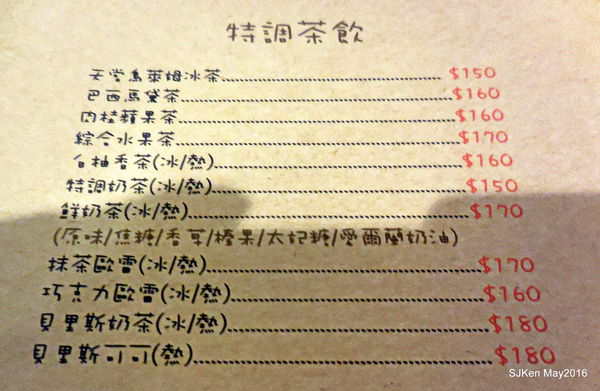 特調茶飲
天堂烏萊姆冰茶 $150
巴西馬黛茶 $160
肉桂蘋果茶 $160
綜合水果茶 $170
白柚香茶(冰/熱) $160
特調奶茶(冰/熱) $150
鮮奶茶(冰/熱) $170
(原味/焦糖/香草/榛果/太妃糖/愛爾蘭奶油)
抹茶歐雪(冰/熱) $170
巧克力歐雪(冰/熱) $160
貝里斯奶茶(冰/熱) $180
貝里斯可可(熱) $180
SJKen May2016